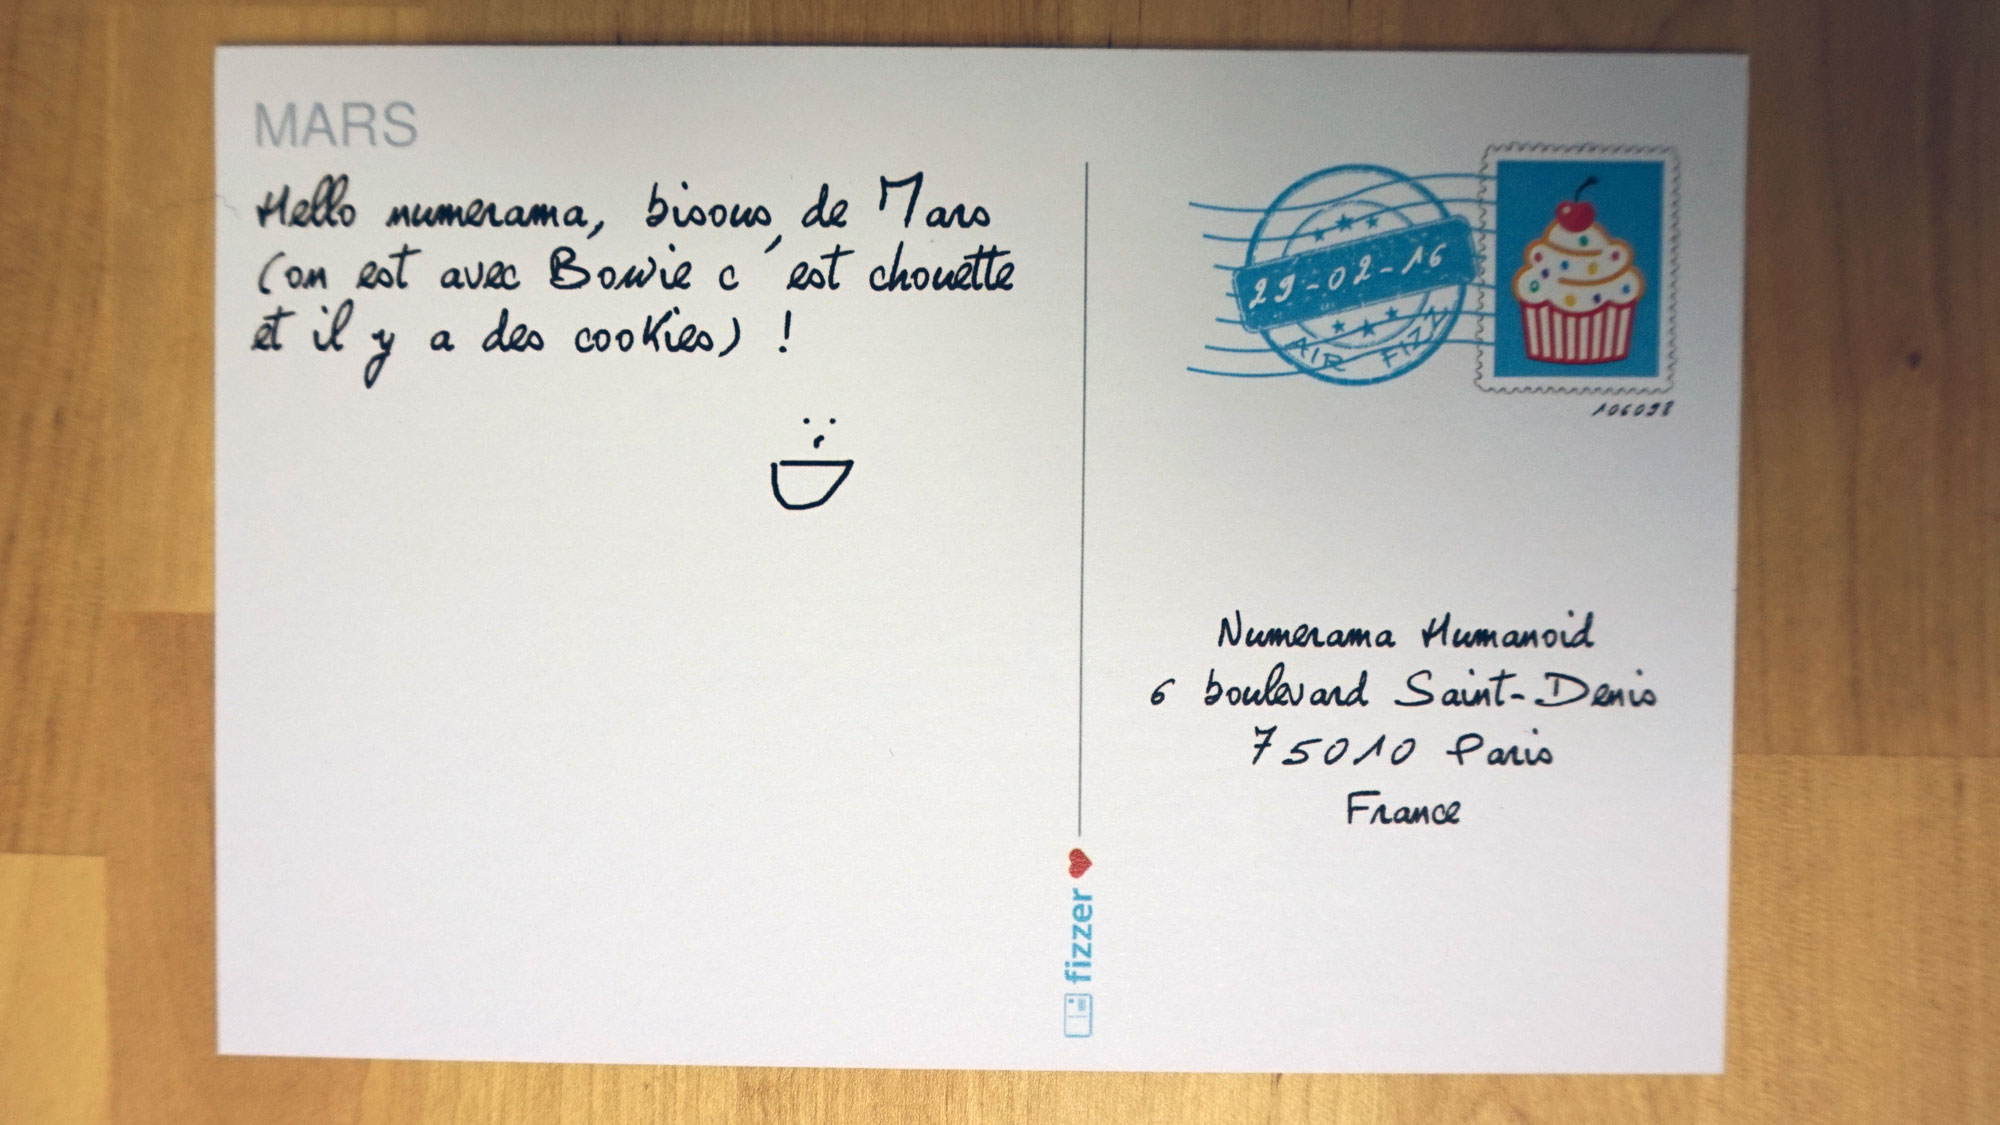 MARS
Hello numerama, bisous de Mars
(on est avec Bowie c'est chouette
et il y a des cookies) !
29-02-16
AIR FIZZ
106098
Numerama Humanoid
6 boulevard Saint-Denis
75010 Paris
France
fizzer